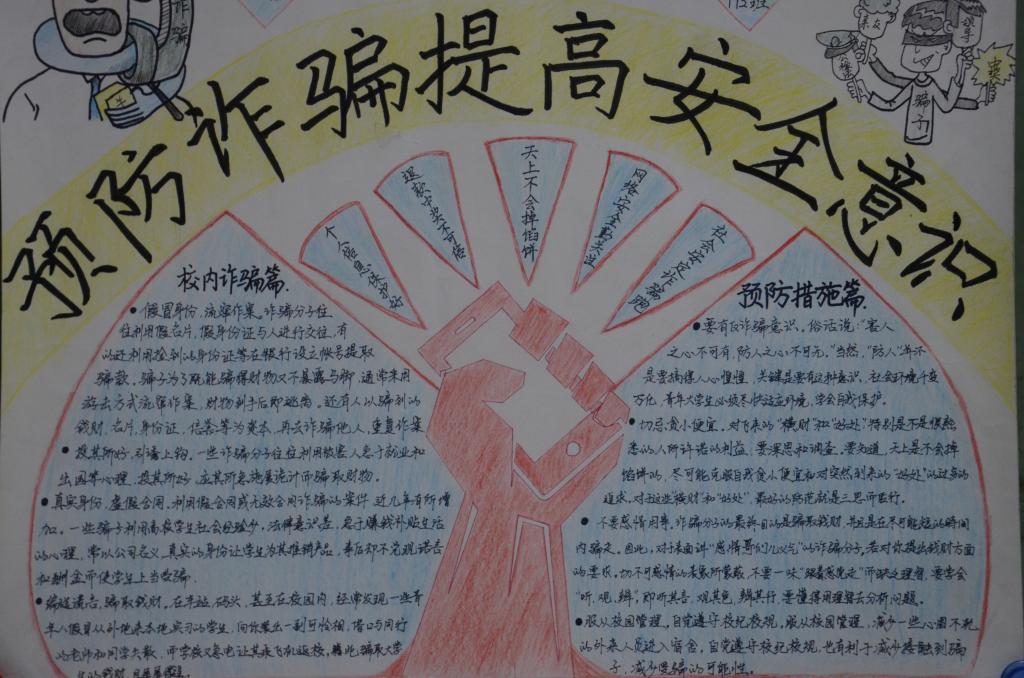 预防诈骗提高安全意识
诈骗
亲友
领导
骗子
班
个人信息保护好
退款中奖不可信
天上不会掉馅饼
网络安全勤关注
社会安定诈骗跑
校内诈骗篇.
•假冒身份,流窜作案。诈骗分子往
往利用假名片,假身份证与人进行交往,有
的还利用捡到的身份证等在银行设立帐号提取
骗款。骗子为了既能骗得财物又不暴露马脚,通常采用
游击方式流窜作案,财物到手后即逃离。还有人以骗到的
钱财,名片,身份证,信誉等为资本,再去诈骗他人,重复作案
•投其所好,引诱上钩。一些诈骗分子往往利用被害人急于就业和
出国等心理,投其所好,应其所急施展诡计而骗取财物.
•真实身份,虚假合同,利用假合同或无效合同诈骗的案件,近几年有所增
加。一些骗子利用高校学生社会经验少,法律意识差,急于赚钱补贴生活
的心理,常以公司名义,真实的身份让学生为其推销产品,事后却不兑现诺言
和酬金而使学生上当受骗.
•编造谎言,骗取钱财。在车站,码头,甚至在校园内,经常发现一些青
年人假冒从外地来本地实习的学生,向你装出一副可怜相,借口与同行
的老师和同学失散,而学校又急电让其乘飞机返校,藉此骗取大学
预防措施篇
•要有反诈骗意识。俗话说:“害人
之心不可有,防人之心不可无。”当然,“防人”并不
是要搞得人心惶惶,关键是要有这种意识,社会环境千变
万化,青年大学生必须尽快适应环境,学会自我保护。
•切忌贪小便宜。对下来的“横财”和“好处”特别是不是很熟
悉的人所许诺的利益,要深思和调查。要知道,天上是不会掉
馅饼的,尽可能克服自我贪小便宜和对突然到来的“好处”的过多的
追求,对于这些“横财”和“好处”,最好的防范就是三思而后行。
•不要感情用事,诈骗分子的最终目的是骗取钱财,并且是在尽可能短的时间
内骗走。因此,对于表面讲“感情哥们儿义气”的诈骗分子,若对你提出钱财方面
的要求。切不可感情的表象所蒙蔽,不要一味“跟着感觉走”而缺乏理智,要学会
“听,观,辨”,即听其言,观其色,辨其行,要懂得用理智去分析问题。
•服从校园管理,自觉遵守校纪校规,服从校园管理,减少一些心图不轨
的外来人员进入宿舍,自觉遵守校纪校规,也有利于减少接触到骗
子,减少受骗的可能性。